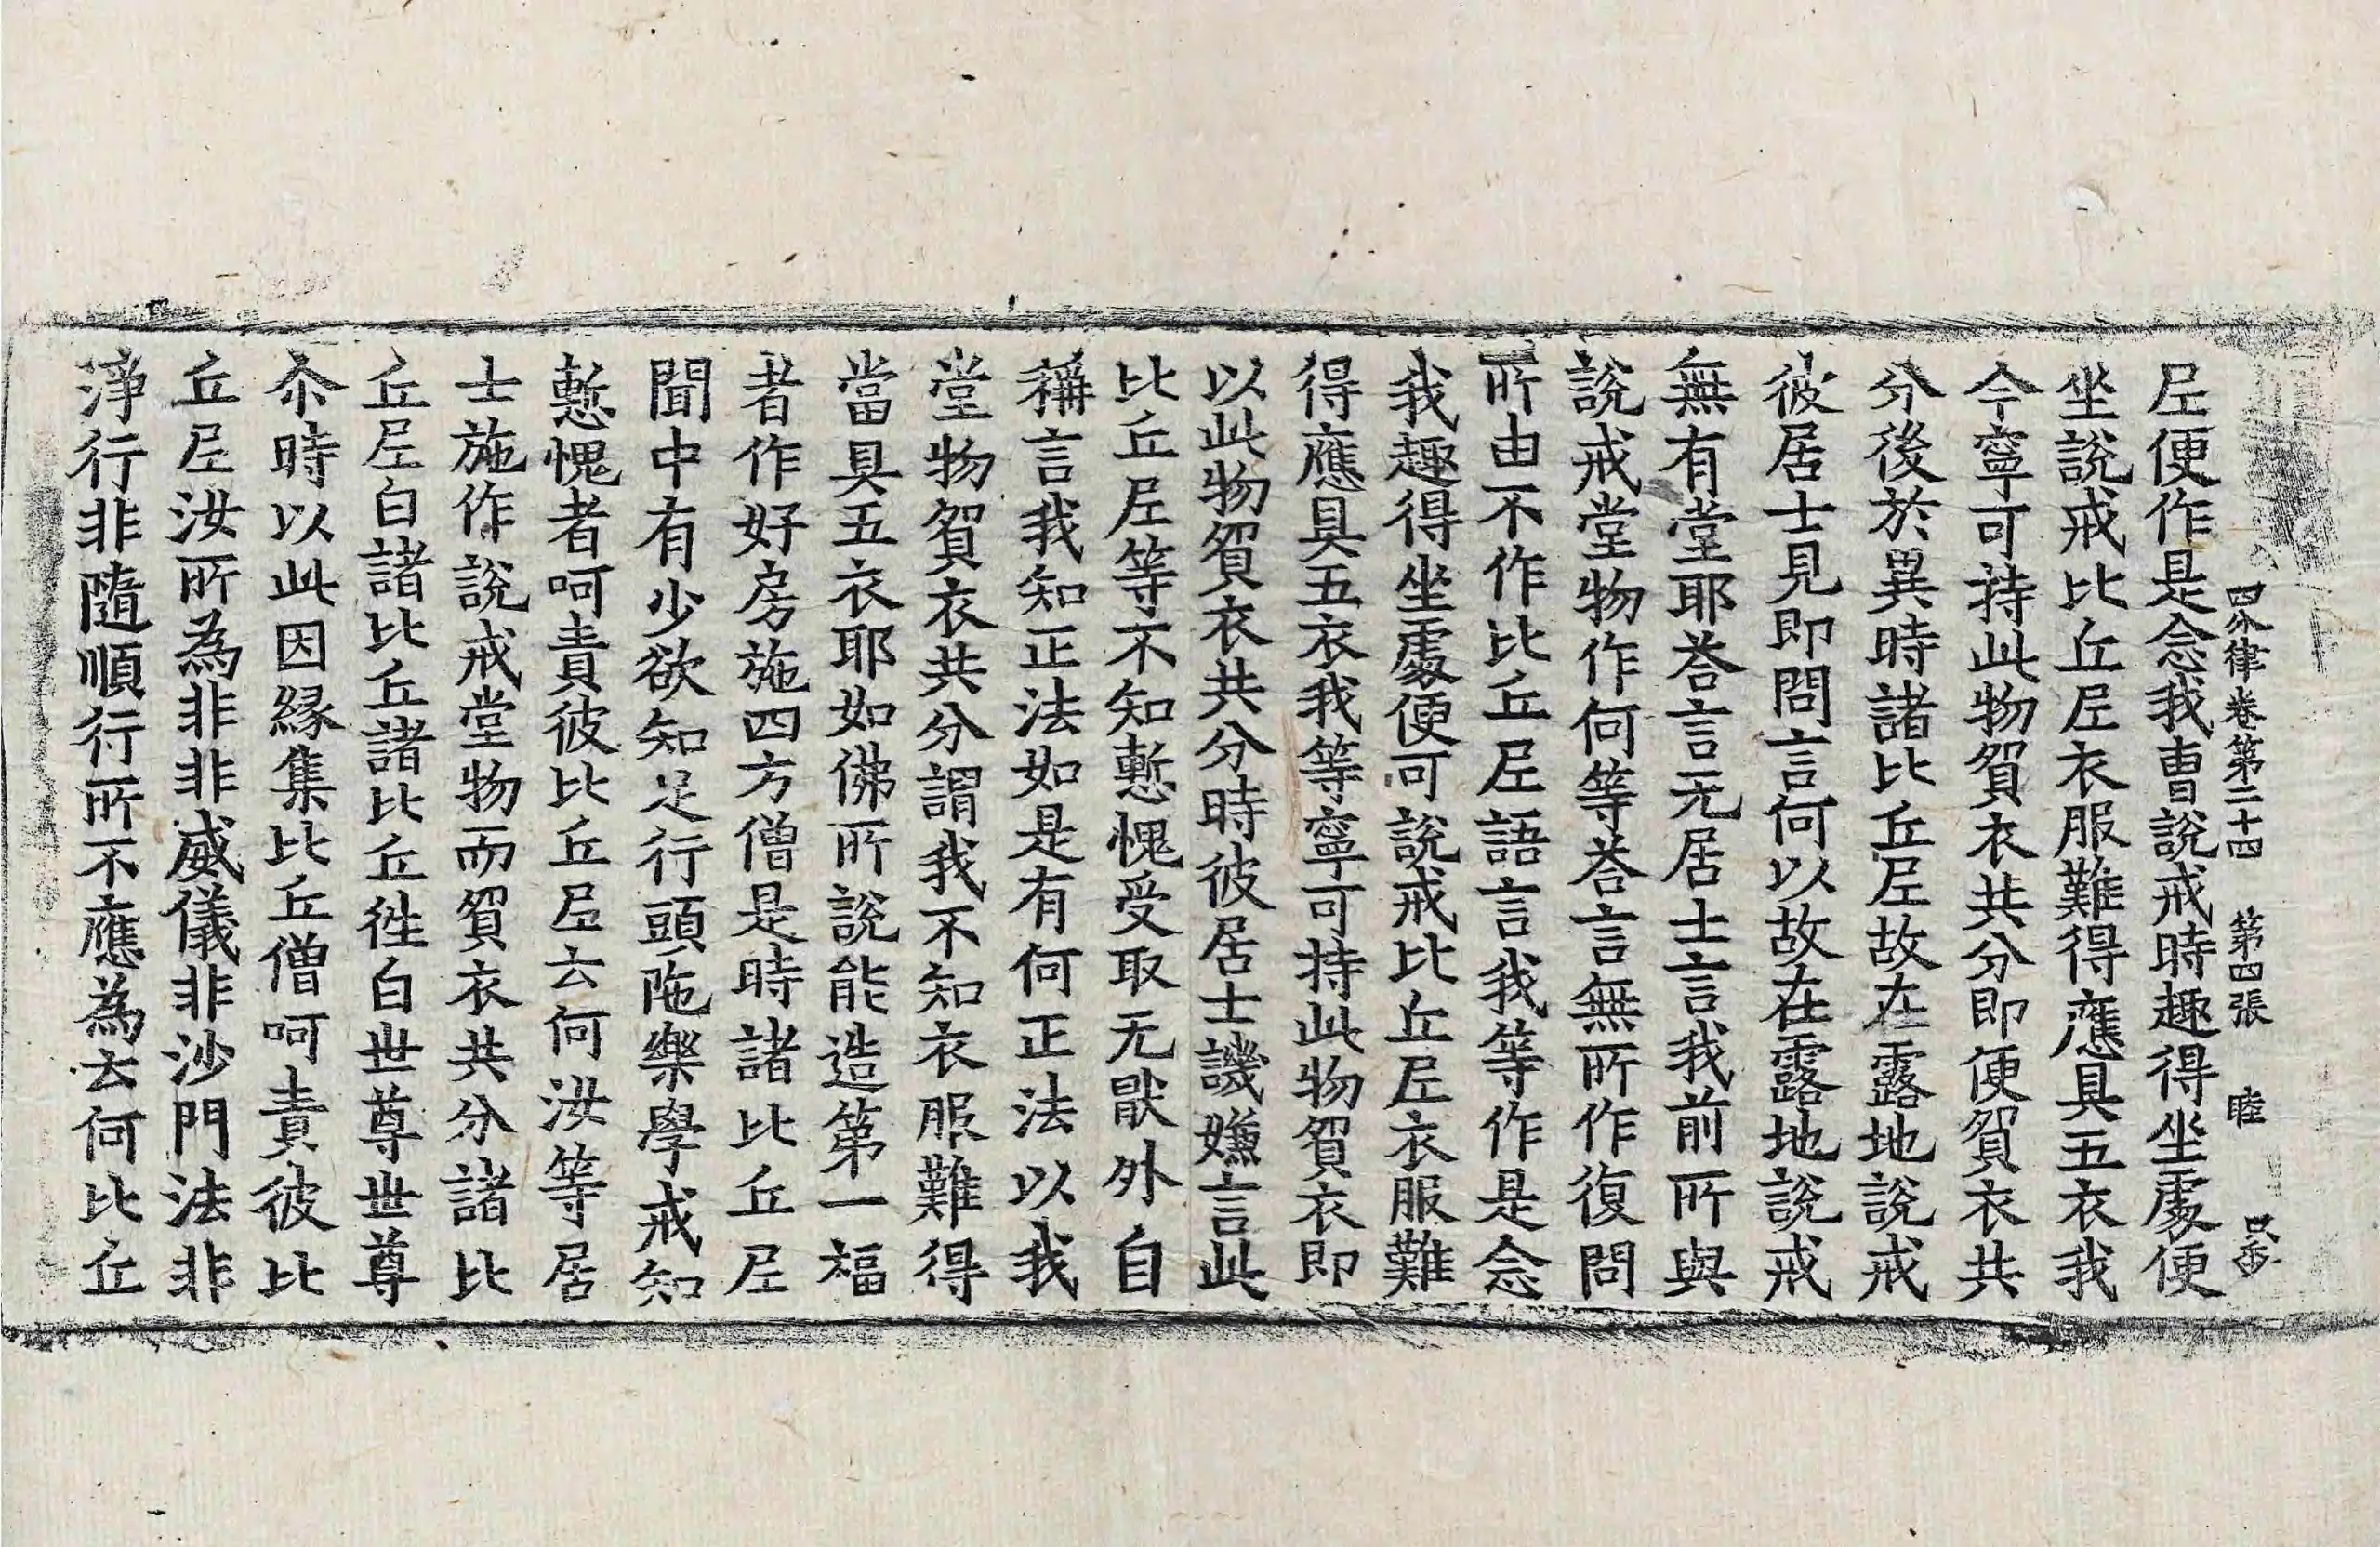 四分律卷第二十四 第四張 睦
尼便作是念我曹說戒時趣得坐處便
坐說戒比丘尼衣服難得應具五衣我
今寧可持此物貿衣共分即便貿衣共
分後於異時諸比丘尼故在露地說戒
彼居士見即問言何以故在露地說戒
無有堂耶荅言无居士言我前所與
說戒堂物作何等荅言無所作復問
所由不作比丘尼語言我等作是念
我趣得坐處便可說戒比丘尼衣服難
得應具五衣我等寧可持此物貿衣即
以此物貿衣共分時彼居士譏嫌言此
比丘尼等不知慙愧受取无猒外自
稱言我知正法如是有何正法以我
堂物貿衣共分謂我不知衣服難得
當具五衣耶如佛所說能造第一福
者作好房施四方僧是時諸比丘尼
聞中有少欲知足行頭陁樂學戒知
慙愧者呵責彼比丘尼云何汝等居
士施作說戒堂物而貿衣共分諸比
丘尼白諸比丘諸比丘徃白世尊世尊
尒時以此因緣集比丘僧呵責彼比
丘尼汝所為非非威儀非沙門法非
淨行非隨順行所不應為云何比丘